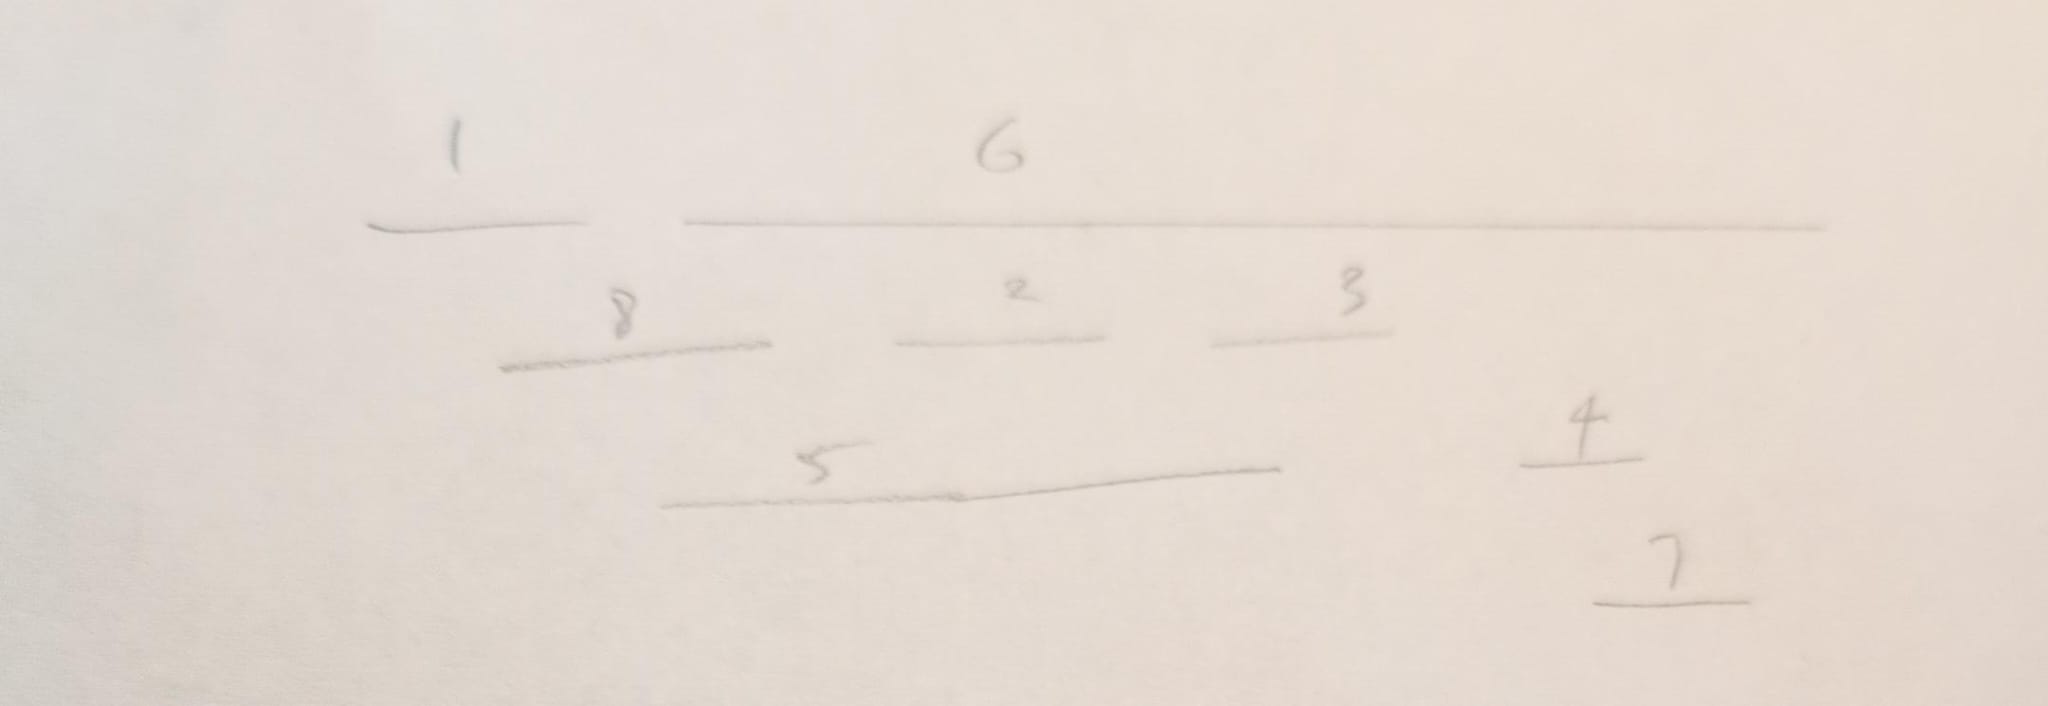 1 6
8 2 3
5 4
7